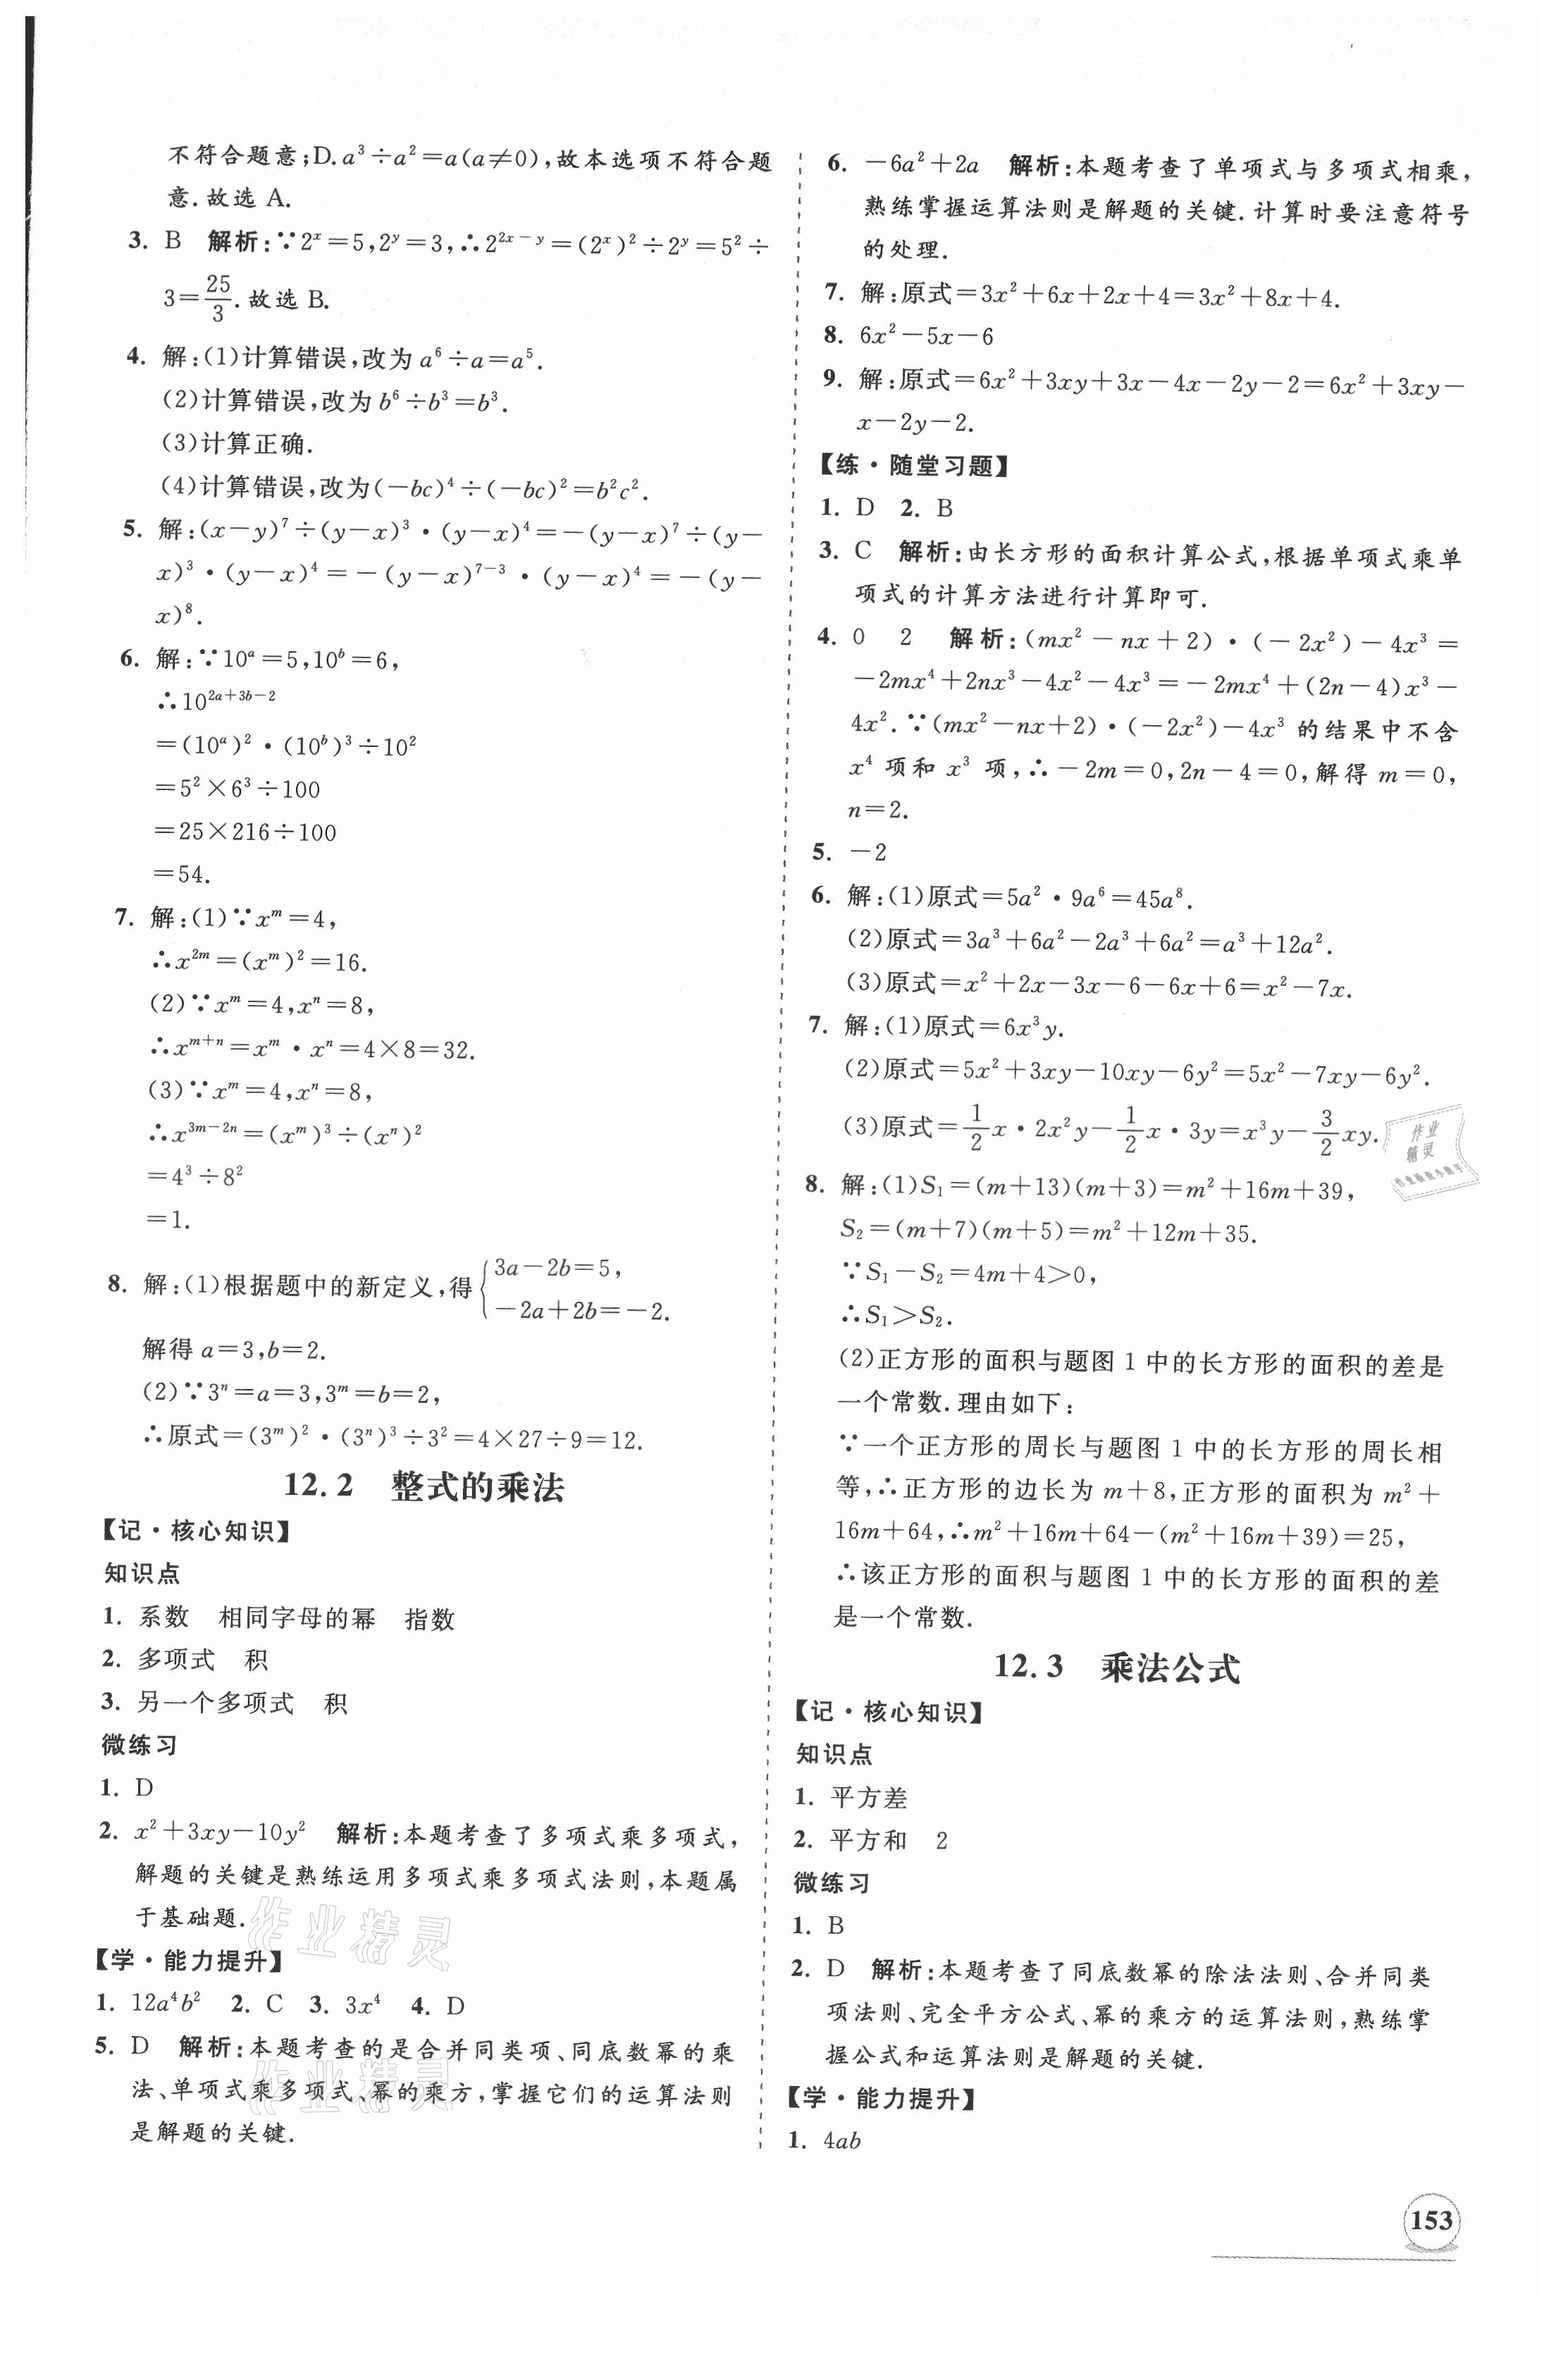 不符合题意;D.a³÷a²=a(a≠0),故本选项不符合题
意.故选 A.
3. B 解析:∵2ˣ=5,2ʸ=3,∴2²ˣ⁻ʸ=(2ˣ)²÷2ʸ=5²÷
3=25/3.故选 B.
4. 解:(1)计算错误,改为 a⁶÷a=a⁵.
(2)计算错误,改为 b⁶÷b³=b³.
(3)计算正确.
(4)计算错误,改为(-bc)⁴÷(-bc)²=b²c².
5. 解:(x-y)⁷÷(y-x)³·(y-x)⁴=-(y-x)⁷÷(y-
x)³·(y-x)⁴=-(y-x)⁷⁻³·(y-x)⁴=-(y-
x)⁸.
6. 解:∵10ᵃ=5,10ᵇ=6,
∴10²ᵃ⁺³ᵇ⁻²
=(10ᵃ)²·(10ᵇ)³÷10²
=5²×6³÷100
=25×216÷100
=54.
7. 解:(1)∵xᵐ=4,
∴x²ᵐ=(xᵐ)²=16.
(2)∵xᵐ=4,xⁿ=8,
∴xᵐ⁺ⁿ=xᵐ·xⁿ=4×8=32.
(3)∵xᵐ=4,xⁿ=8,
∴x³ᵐ⁻²ⁿ=(xᵐ)³÷(xⁿ)²
=4³÷8²
=1.
8. 解:(1)根据题中的新定义,得{3a-2b=5,
-2a+2b=-2.
解得 a=3,b=2.
(2)∵3ⁿ=a=3,3ᵐ=b=2,
∴原式=(3ᵐ)²·(3ⁿ)³÷3²=4×27÷9=12.
12.2 整式的乘法
【记·核心知识】
知识点
1. 系数 相同字母的幂 指数
2. 多项式 积
3. 另一个多项式 积
微练习
1. D
2. x²+3xy-10y² 解析:本题考查了多项式乘多项式,
解题的关键是熟练运用多项式乘多项式法则,本题属
于基础题.
作业精灵
【学·能力提升】
1. 12a⁴b² 2. C 3. 3x⁴ 4. D
5. D 解析:本题考查的是合并同类项、同底数幂的乘
法、单项式乘多项式、幂的乘方,掌握它们的运算法则
是解题的关键.
作业精灵
6. -6a²+2a 解析:本题考查了单项式与多项式相乘,
熟练掌握运算法则是解题的关键.计算时要注意符号
的处理.
7. 解:原式=3x²+6x+2x+4=3x²+8x+4.
8. 6x²-5x-6
9. 解:原式=6x²+3xy+3x-4x-2y-2=6x²+3xy-
x-2y-2.
【练·随堂习题】
1. D 2. B
3. C 解析:由长方形的面积计算公式,根据单项式乘单
项式的计算方法进行计算即可.
4. 0 2 解析:(mx²-nx+2)·(-2x²)-4x³=
-2mx⁴+2nx³-4x²-4x³=-2mx⁴+(2n-4)x³-
4x².∵(mx²-nx+2)·(-2x²)-4x³ 的结果中不含
x⁴ 项和 x³ 项,∴-2m=0,2n-4=0,解得 m=0,
n=2.
5. -2
6. 解:(1)原式=5a²·9a⁶=45a⁸.
(2)原式=3a³+6a²-2a³+6a²=a³+12a².
(3)原式=x²+2x-3x-6-6x+6=x²-7x.
7. 解:(1)原式=6x³y.
(2)原式=5x²+3xy-10xy-6y²=5x²-7xy-6y².
(3)原式=1/2x·2x²y-1/2x·3y=x³y-3/2xy.
作业
精灵
8. 解:(1)S₁=(m+13)(m+3)=m²+16m+39,
S₂=(m+7)(m+5)=m²+12m+35.
∵S₁-S₂=4m+4>0,
∴S₁>S₂.
(2)正方形的面积与题图 1 中的长方形的面积的差是
一个常数.理由如下:
∵一个正方形的周长与题图 1 中的长方形的周长相
等,∴正方形的边长为 m+8,正方形的面积为 m²+
16m+64,∴m²+16m+64-(m²+16m+39)=25,
∴该正方形的面积与题图 1 中的长方形的面积的差
是一个常数.
12.3 乘法公式
【记·核心知识】
知识点
1. 平方差
2. 平方和 2
微练习
1. B
2. D 解析:本题考查了同底数幂的除法法则、合并同类
项法则、完全平方公式、幂的乘方的运算法则,熟练掌
握公式和运算法则是解题的关键.
【学·能力提升】
1. 4ab
153